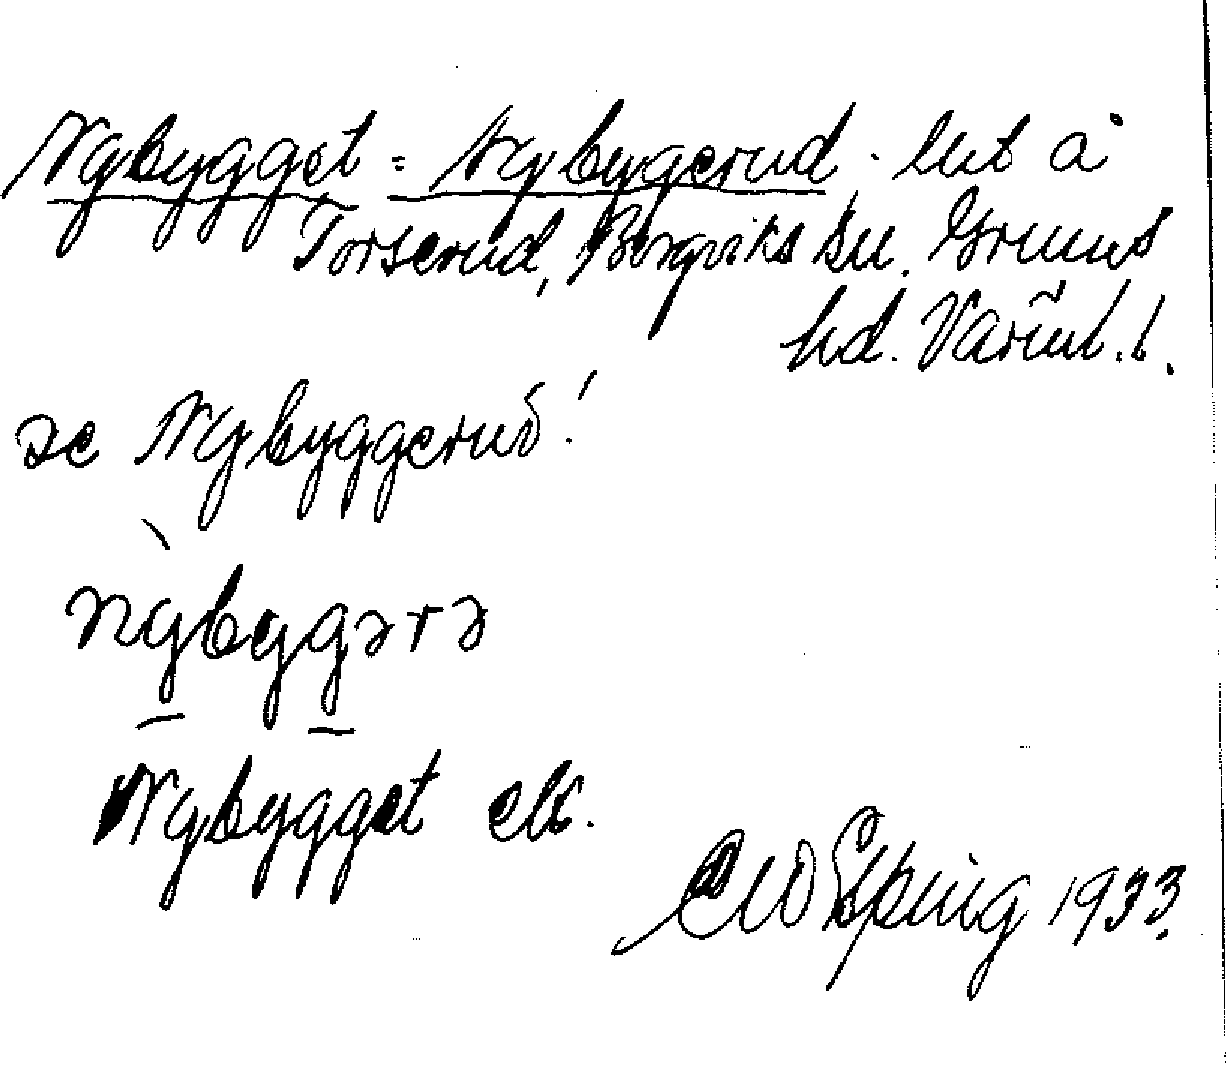 Nybygget = Nybygerud. lht å
Torserud, Borgviks sn. Grums
hd. Värml. l.
se Nybyggerud!
nỳbygərə
Nybygget etc.
CW Elping 1933.